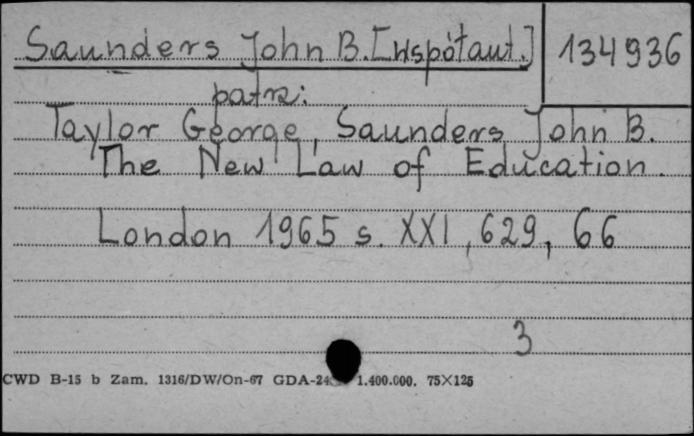 Saunders John B. [współaut.] 134936
patrz:
Taylor George, Saunders John B.
The New Law of Education.
London 1965 s. XXI, 629, 66
3
CWD B-15 b Zam. 1316/DW/On-67 GDA-24 1.400.000. 75×125